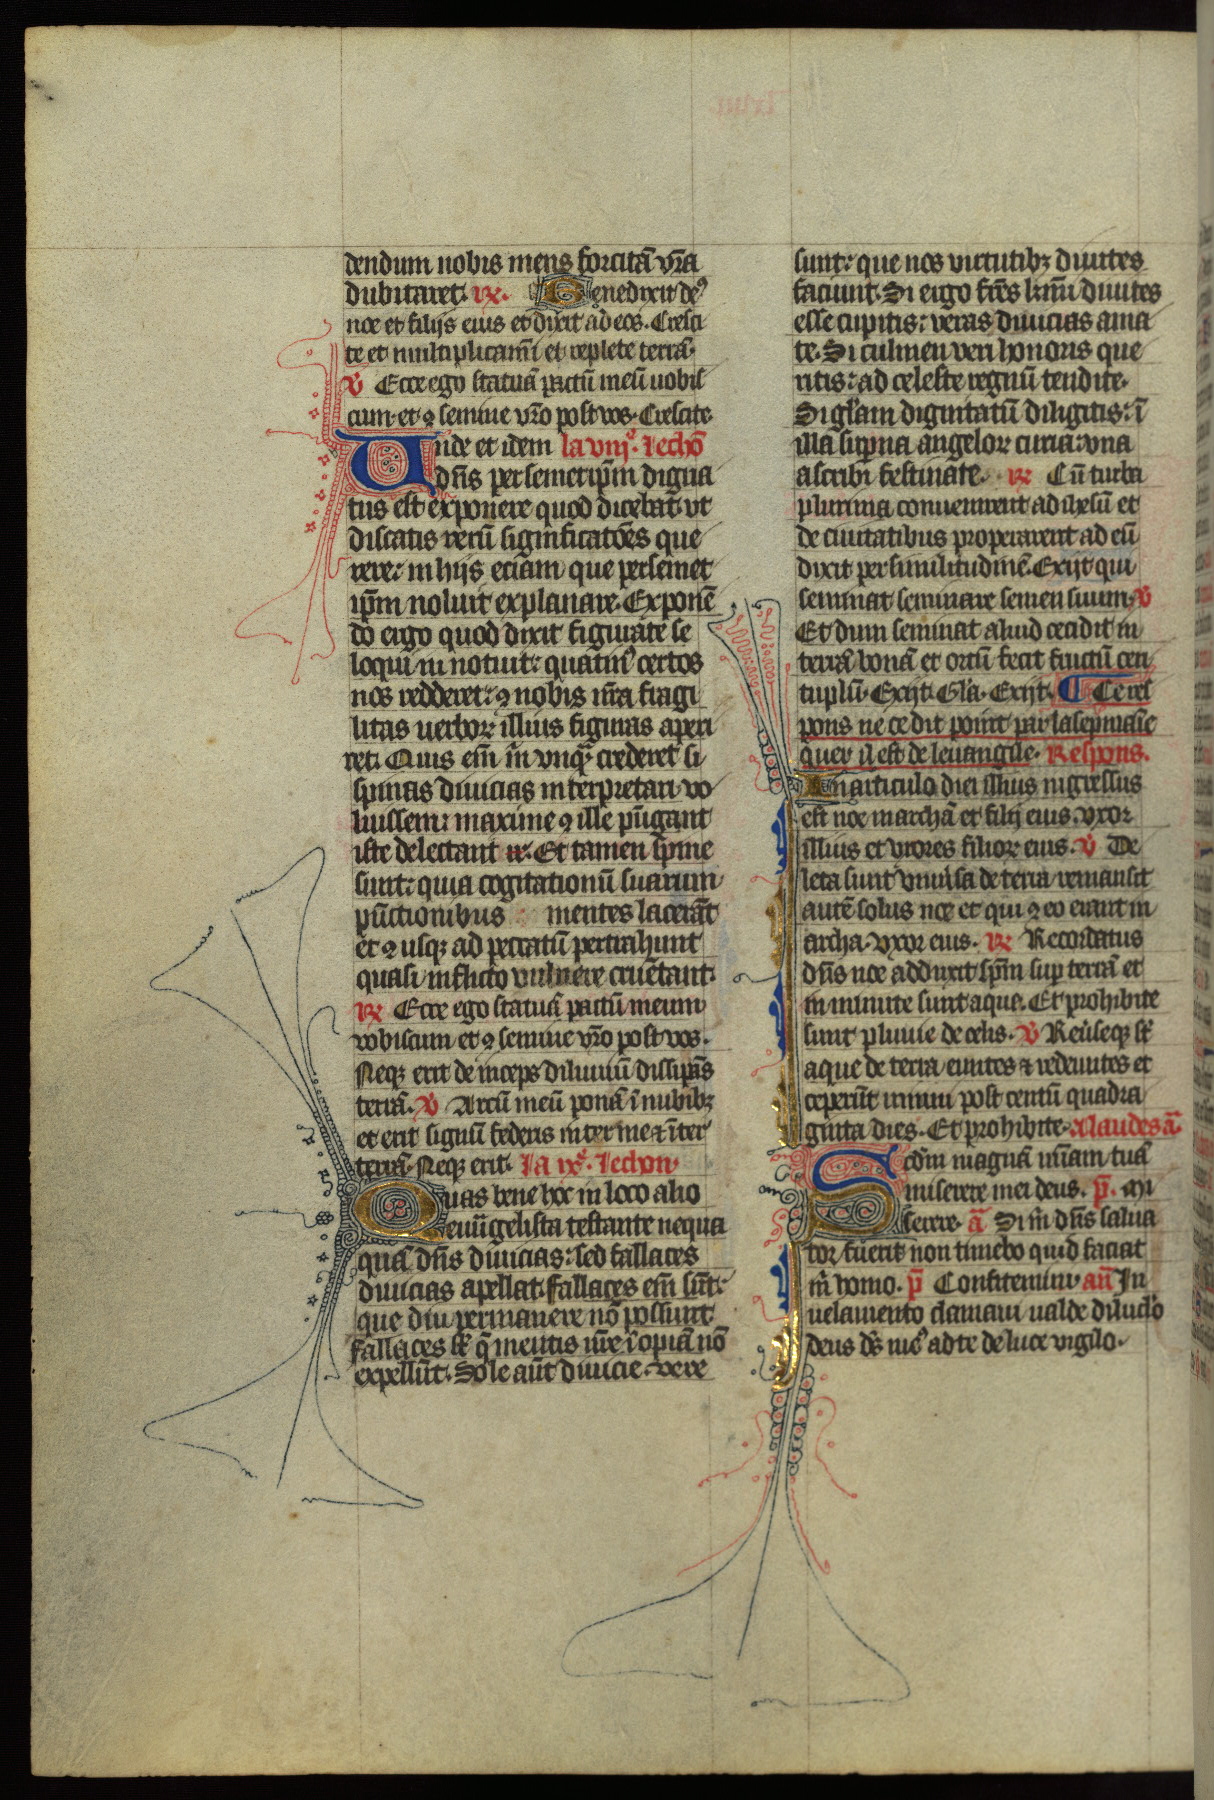 dendum nobis mens forcitã vr̃a
dubitaret. ix. Benedixit deꝰ
noe et filijs eius et dixit ad eos. Cresci
te et multiplicamĩ et replete terrã.
℣ Ecce ego statuã pactũ meũ uobis
cum et ꝯ semine vr̃o post vos. Crescite
Unde et idem la viijͤ. lechõ
dñs per semetip̃m digna
tus est exponere quod dicebat. ut
discatis rerũ significatões que
rere: in hijs eciam que per semet
ip̃m noluit explanare. Exponẽ
do ergo quod dixit figurate se
loqui in notuit: quatinꝰ certos
nos redderet: ꝯ nobis nr̃a fragi
litas verboꝝ illius figuras aperi
ret. Quis em̃ m̃ vnq̃ crederet si
spinas diuicias interpretari vo
luissem: maxime ꝯ ille pũgant
iste delectant. Et tamen spine
sunt: quia cogitationũ suarum
pũctionibus mentes lacerãt
et ꝯ usqꝫ ad peccatũ pertrahunt
quasi inflicto vulnere cruẽtant.
℟ Ecce ego statuã pactũ meum
vobiscum et ꝯ semine vr̃o post vos.
Neqꝫ erit deinceps diluuiũ dissipãs
terrã. ℣ Arcũ meũ ponã ĩ nubibꝫ
et erit signũ federis inter me ⁊ ĩter
terrã. Neqꝫ erit. la ixͤ. lechon
Quas bene hoc in loco alio
euũgelista testante nequa
quã dñs diuicias: sed fallaces
diuicias apellat. fallaces em̃ sũt:
que diu permanere nõ possunt
fallaces st̃ q̃ mentis nr̃e ĩopiã nõ
expellũt. Sole aũt diuicie. vere
sunt: que nos uirtutibꝫ diuites
faciunt. Si ergo fr̃es kr̃mi diuites
esse cupitis: veras diuicias ama
te. Si culmen veri honoris que
ritis: ad celeste regnũ tendite.
Si gl̃am dignitatũ diligitis: ĩ
illa sup̃na angeloꝝ curia: vna
ascribi festinate. ℟ Cũ turba
plurima conuenirent ad ih̃esũ et
de ciuitatibus properarent ad eũ
dixit per similitudinẽ. Exijt qui
seminat seminare semen suum. ℣
Et dum seminat aliud cecidit in
terrã bonã et ortũ fecit fructũ cen
tuplũ. Exijt. Gl̃a. Exijt. Ce res
pons ne ce dit point par la sepmaĩe
quer il est de leuangile. Respons.
In articulo diei illius ingressus
est noe in archã et filij eius. vxor
illius et vxores filioꝝ eius. ℣ De
leta sunt vniũsa de terra remansit
autẽ solus noe et qui ꝯ eo erant in
archa. vxor eius. ℟ Recordatus
dñs noe adduxit sp̃m sup terrã et
minute sunt aque. Et prohibite
sunt pluuie de celis. ℣ Reũseqꝫ st̃
aque de terra euntes ⁊ redeuntes et
ceperũt minui post centũ quadra
ginta dies. Et prohibite. A laudes a᷈
Scd̃m magnã mi᷈am tuã
miserere mei deus. p̃. Mi
serere. a᷈ Si m̃ dñs salua
tor fuerit non timebo quid faciat
m̃ homo. p̃ Confitemini. añ In
uelamento clamaui ualde diluclõ
deus dr̃s mẽ ad te de luce vigilo.